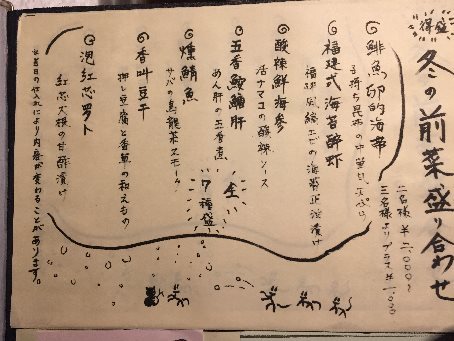 得盛
冬の前菜盛り合わせ
二名様 ¥2,000〜
三名様よりプラス ¥1,000
鯡魚卵的海帯
子持ち昆布の中華天ぷら
福建式海苔醉虾
福建風 甘エビの海苔正油漬け
酸辣鮮海参
活ナマコの酸辣ソース
五香鮟鱇肝
あん肝の五香煮
燻鯖魚
サバの烏龍茶スモーク
香叫豆干
押し豆腐と香菜の和えもの
泡紅芯萝卜
紅芯大根の甘酢漬け
全
7種盛り
※当日の仕入れにより内容が変わることがあります。